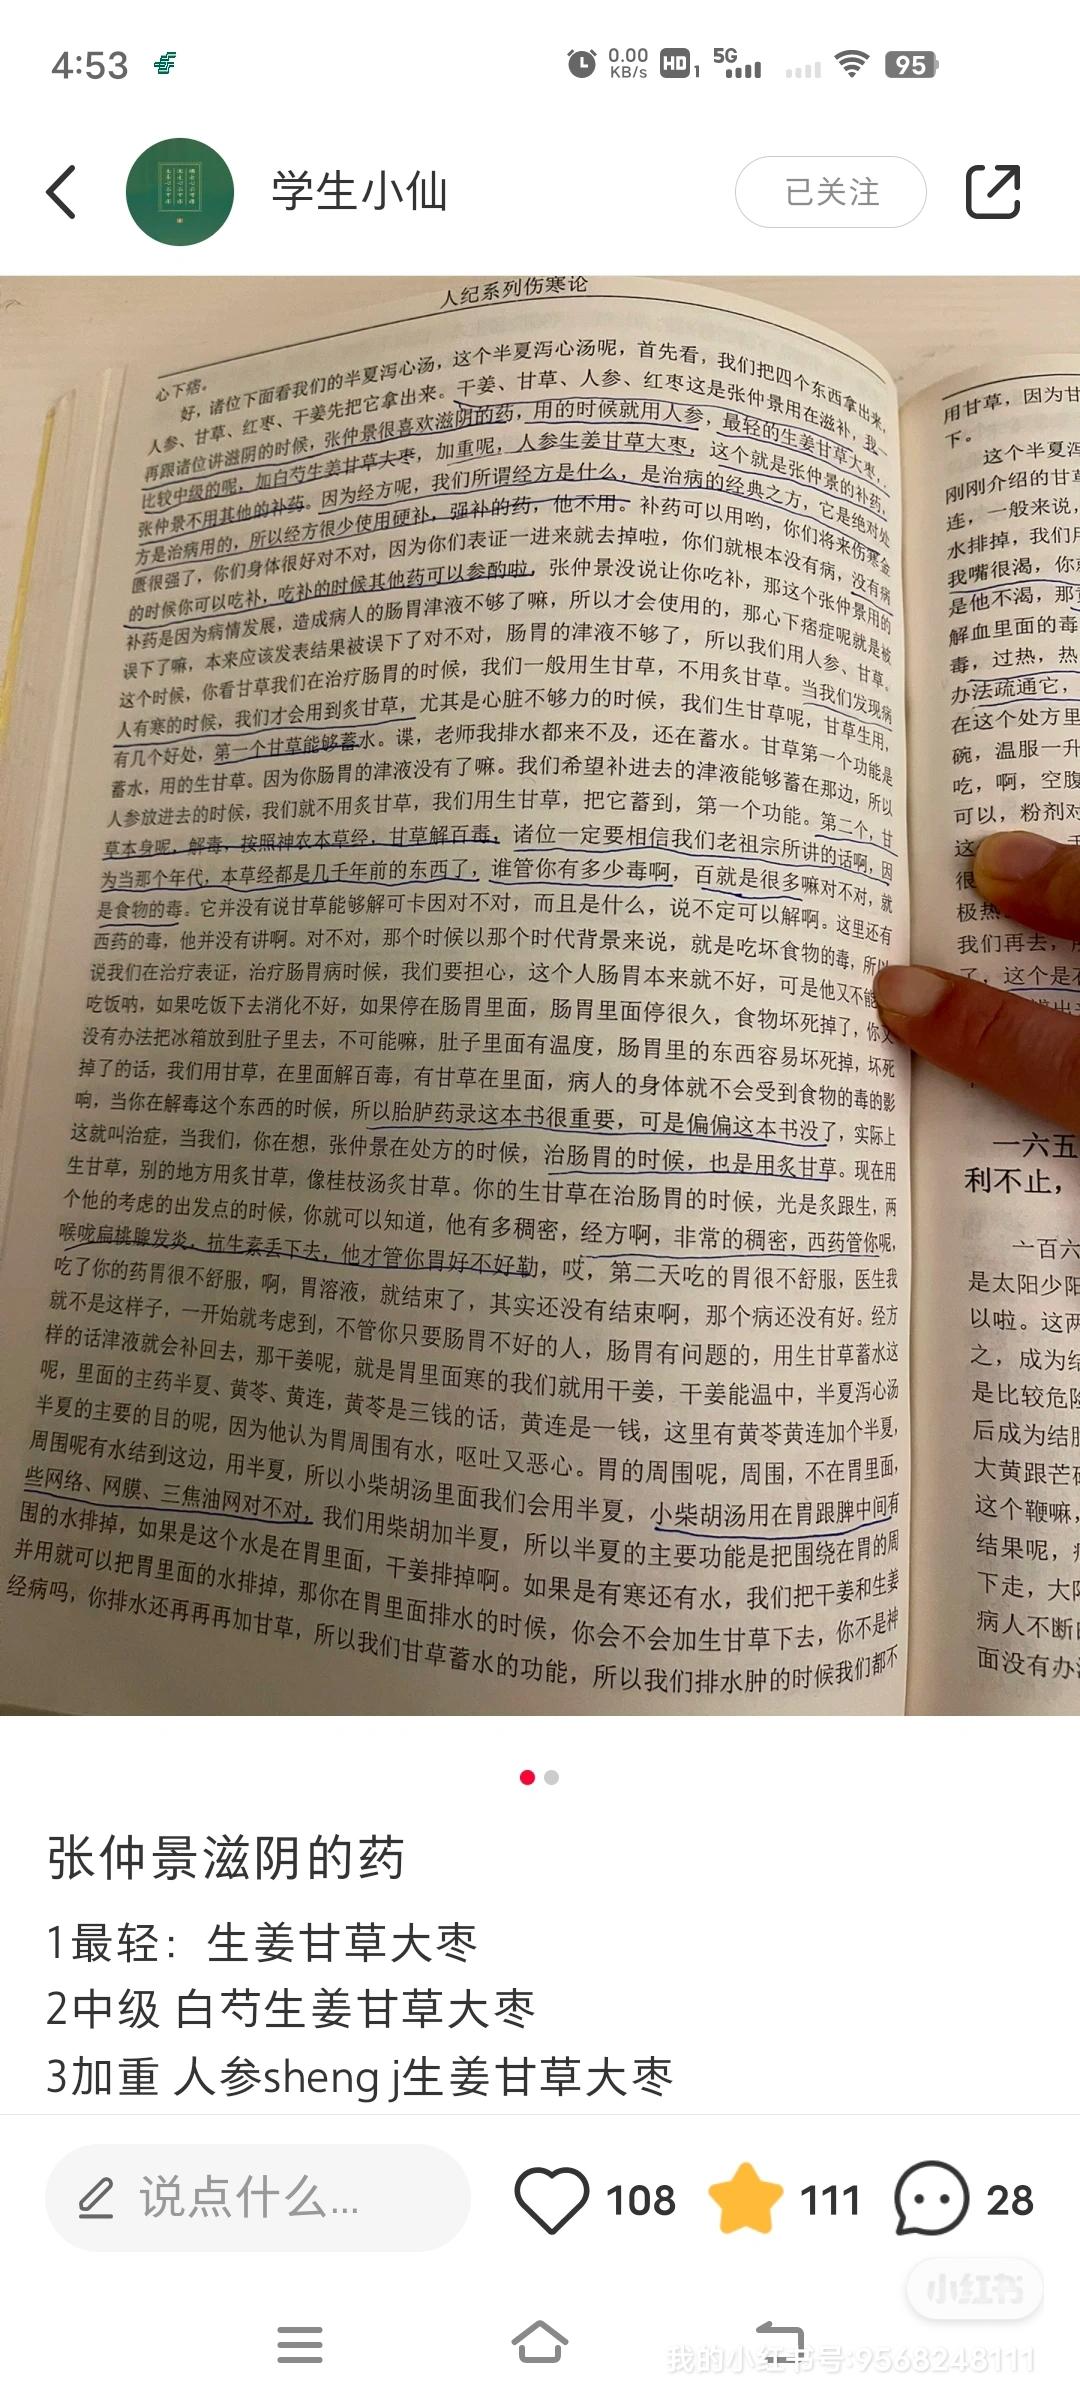 4:53
0.00
KB/s
HD 1
5G
95
学生小仙
已关注
人纪系列伤寒论
心下痞。
好，诸位下面看我们的半夏泻心汤，这个半夏泻心汤呢，首先看，我们把四个东西拿出来，
人参、甘草、红枣、干姜先把它拿出来。干姜、甘草、人参、红枣这是张仲景用在滋补，我
再跟诸位讲滋阴的时候，张仲景很喜欢滋阴的药，用的时候就用人参，最轻的生姜甘草大枣，
比较中级的呢，加白芍生姜甘草大枣，加重呢，人参生姜甘草大枣，这个就是张仲景的补药，
张仲景不用其他的补药。因为经方呢，我们所谓经方是什么，是治病的经典之方，它是绝对处
方是治病用的，所以经方很少使用硬补，强补的药，他不用。补药可以用哟，你们将来伤寒金
匮很强了，你们身体很好对不对，因为你们表证一进来就去掉啦，你们就根本没有病，没有病
的时候你可以吃补，吃补的时候其他药可以参酌啦，张仲景没说让你吃补，那这个张仲景用的
补药是因为病情发展，造成病人的肠胃津液不够了嘛，所以才会使用的，那心下痞症呢就是被
误下了嘛，本来应该发表结果被误下了对不对，肠胃的津液不够了，所以我们用人参、甘草。
这个时候，你看甘草我们在治疗肠胃的时候，我们一般用生甘草，不用炙甘草。当我们发现病
人有寒的时候，我们才会用到炙甘草，尤其是心脏不够力的时候，我们生甘草呢，甘草生用，
有几个好处，第一个甘草能够蓄水。谍，老师我排水都来不及，还在蓄水。甘草第一个功能是
蓄水，用的生甘草。因为你肠胃的津液没有了嘛。我们希望补进去的津液能够蓄在那边，所以
人参放进去的时候，我们就不用炙甘草，我们用生甘草，把它蓄到，第一个功能。第二个，甘
草本身呢，解毒，按照神农本草经，甘草解百毒，诸位一定要相信我们老祖宗所讲的话啊，因
为当那个年代，本草经都是几千年前的东西了，谁管你有多少毒啊，百就是很多嘛对不对，就
是食物的毒。它并没有说甘草能够解可卡因对不对，而且是什么，说不定可以解啊。这里还有
西药的毒，他并没有讲啊。对不对，那个时候以那个时代背景来说，就是吃坏食物的毒，所以
说我们在治疗表证，治疗肠胃病时候，我们要担心，这个人肠胃本来就不好，可是他又不能
吃饭呐，如果吃饭下去消化不好，如果停在肠胃里面，肠胃里面停很久，食物坏死掉了，你又
没有办法把冰箱放到肚子里去，不可能嘛，肚子里面有温度，肠胃里的东西容易坏死掉，坏死
掉了的话，我们用甘草，在里面解百毒，有甘草在里面，病人的身体就不会受到食物的毒的影
响，当你在解毒这个东西的时候，所以胎胪药录这本书很重要，可是偏偏这本书没了，实际上
这就叫治症，当我们，你在想，张仲景在处方的时候，治肠胃的时候，也是用炙甘草。现在用
生甘草，别的地方用炙甘草，像桂枝汤炙甘草。你的生甘草在治肠胃的时候，光是炙跟生，两
个他的考虑的出发点的时候，你就可以知道，他有多稠密，经方啊，非常的稠密，西药管你呢，
喉咙扁桃腺发炎，抗生素丢下去，他才管你胃好不好勒，哎，第二天吃的胃很不舒服，医生我
吃了你的药胃很不舒服，啊，胃溶液，就结束了，其实还没有结束啊，那个病还没有好。经方
就不是这样子，一开始就考虑到，不管你只要肠胃不好的人，肠胃有问题的，用生甘草蓄水这
样的话津液就会补回去，那干姜呢，就是胃里面寒的我们就用干姜，干姜能温中，半夏泻心汤
呢，里面的主药半夏、黄芩、黄连，黄芩是三钱的话，黄连是一钱，这里有黄芩黄连加个半夏，
半夏的主要的目的呢，因为他认为胃周围有水，呕吐又恶心。胃的周围呢，周围，不在胃里面，
周围呢有水结到这边，用半夏，所以小柴胡汤里面我们会用半夏，小柴胡汤用在胃跟脾中间有
些网络、网膜、三焦油网对不对，我们用柴胡加半夏，所以半夏的主要功能是把围绕在胃的周
围的水排掉，如果是这个水是在胃里面，干姜排掉啊。如果是有寒还有水，我们把干姜和生姜
并用就可以把胃里面的水排掉，那你在胃里面排水的时候，你会不会加生甘草下去，你不是神
经病吗，你排水还再再再加甘草，所以我们甘草蓄水的功能，所以我们排水肿的时候我们都不
用甘草，因为甘
下。
这个半夏泻
刚刚介绍的甘草
连，一般来说，
水排掉，我们用
我嘴很渴，你
是他不渴，那
解血里面的毒
毒，过热，热
办法疏通它，
在这个处方里
碗，温服一升
吃，啊，空腹
可以，粉剂对
这
很
极热
我们再去，
了，这个是
一六五
利不止，
一百六
是太阳少阳
以啦。这两
之，成为结
是比较危险
后成为结胸
大黄跟芒硝
这个鞭嘛，
结果呢，
下走，大陷
病人不断
面没有办法
张仲景滋阴的药
1最轻：生姜甘草大枣
2中级 白芍生姜甘草大枣
3加重 人参sheng j生姜甘草大枣
说点什么...
108
111
28
小红书
我的小红书号:9568248111